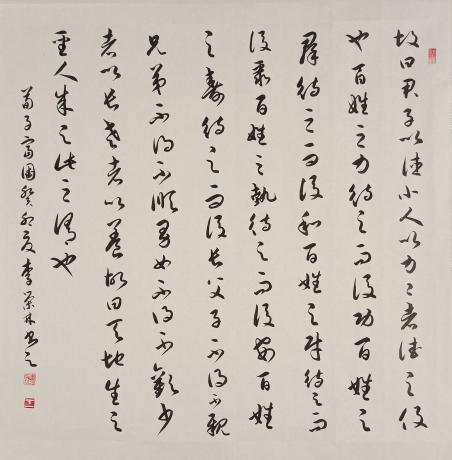 故曰君子以德小人以力々者德之役
也百姓之力待之而後功百姓之
群待之而後和百姓之財待之而
後聚百姓之埶待之而後安百姓
之壽待之而後長父子不得不親
兄弟不得不順男女不得不歡少
者以長老者以養故曰天地生之
聖人成之此之謂也
荀子富國癸卯夏李榮林書之